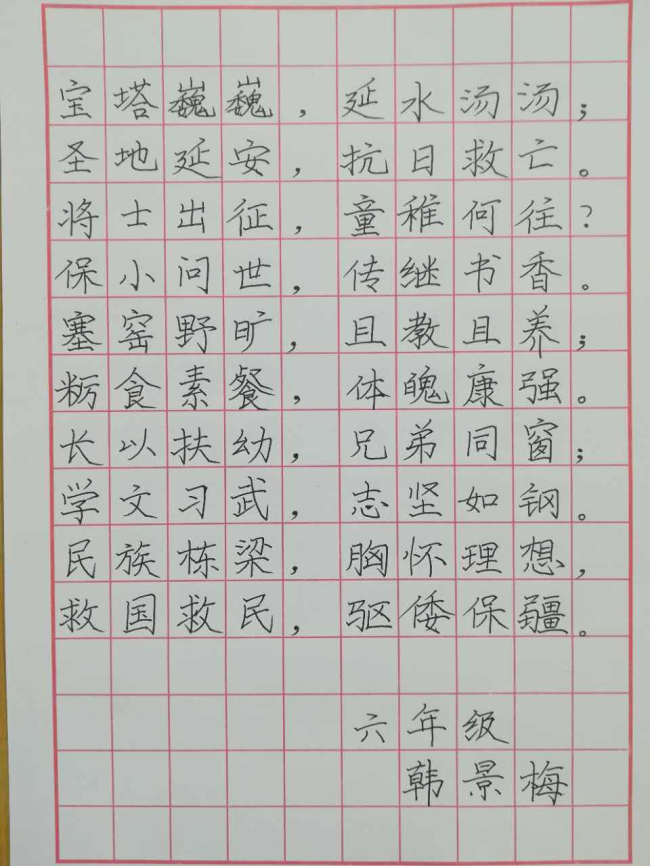 宝塔巍巍，延水汤汤；
圣地延安，抗日救亡。
将士出征，童稚何往？
保小问世，传继书香。
塞窑野旷，且教且养；
粝食素餐，体魄康强。
长以扶幼，兄弟同窗；
学文习武，志坚如钢。
民族栋梁，胸怀理想，
救国救民，驱倭保疆。
六年级
韩景梅